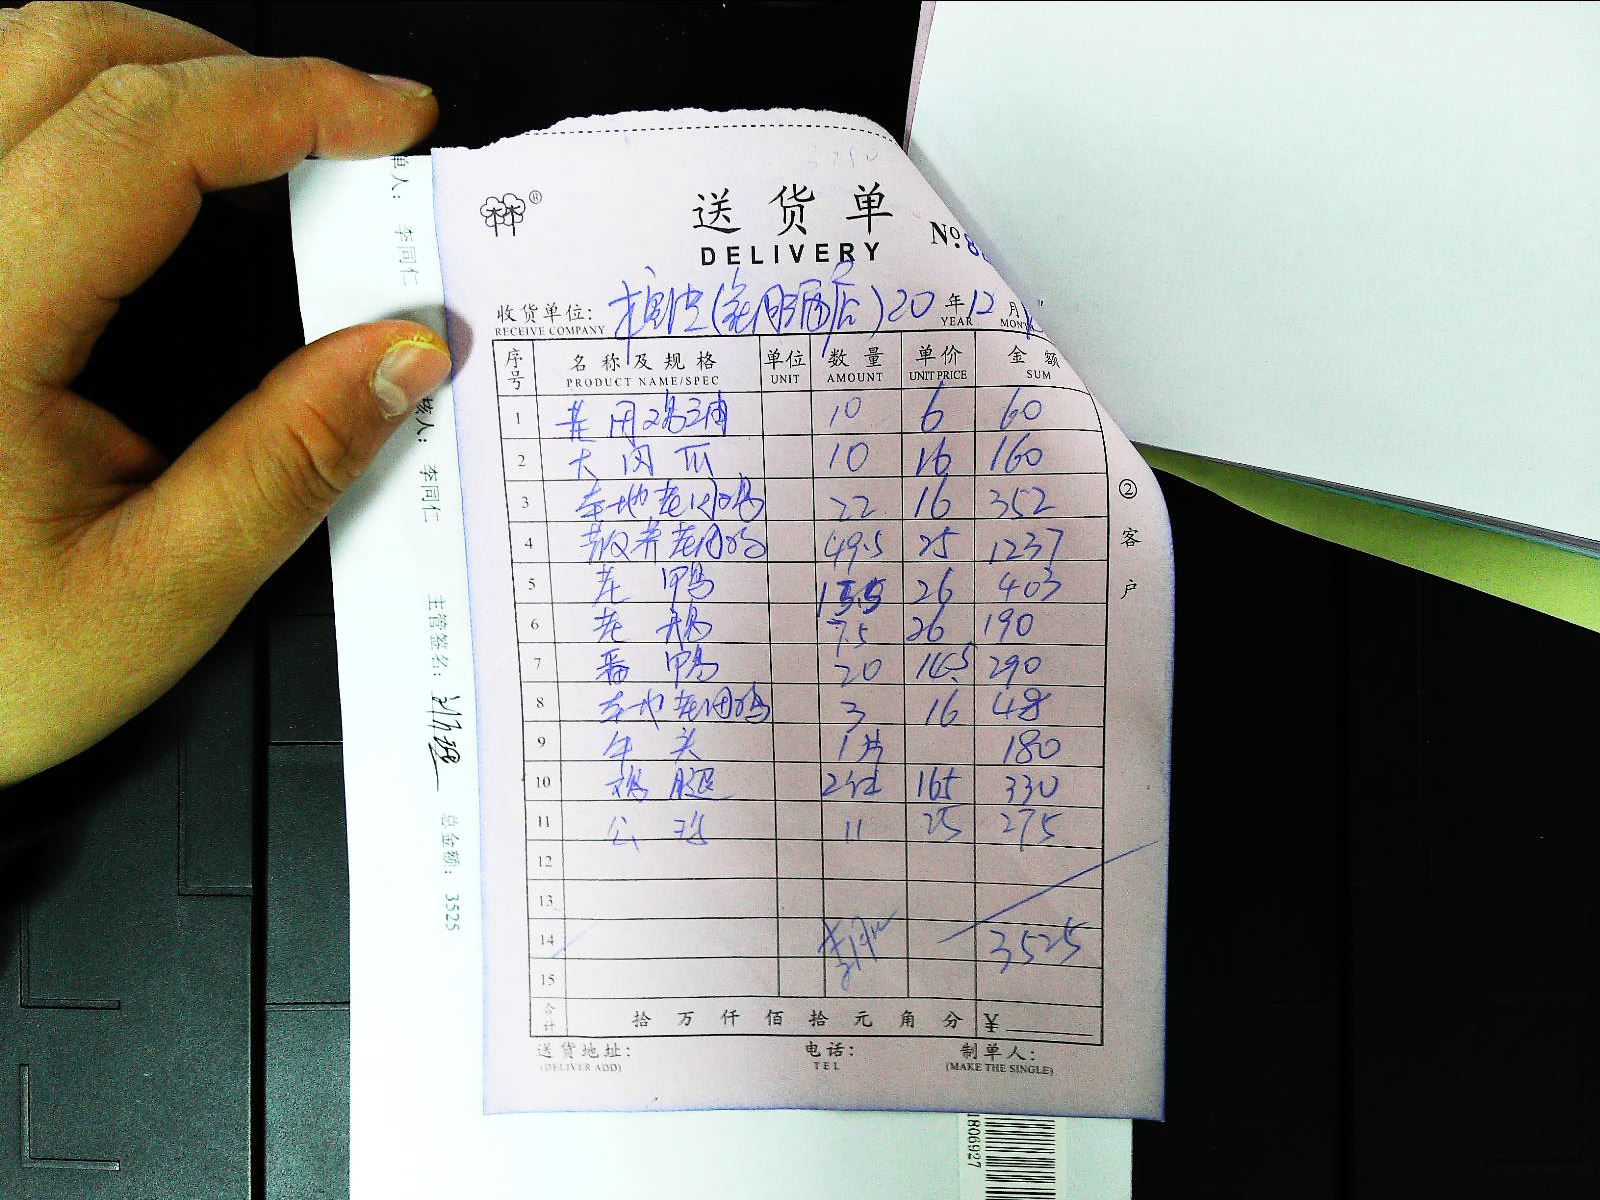 送货单
DELIVERY
No.
收货单位: 20年12月
RECEIVE COMPANY YEAR
序号 名称及规格 单位 数量 单价 金额
PRODUCT NAME/SPEC UNIT AMOUNT UNIT PRICE SUM
1 10 6 60
2 大冈瓜 10 16 160
3 本地老 22 16 352
4 散养老 49.5 25 1237
5 老鸭 15.5 26 403
6 老鹅 7.5 26 190
7 番鸭 20 14.5 290
8 本地老 3 16 48
9 牛头 1片 180
10 鸡腿 2 165 330
11 公鸡 11 25 275
12
13
14 3525
15
合计 拾万仟佰拾元角分 ¥
送货地址: 电话: 制单人:
(DELIVER ADD) TEL (MAKE THE SINGLE)
②客户
单人: 李同仁
核人: 李同仁
主管签名:
总金额: 3525
1806927